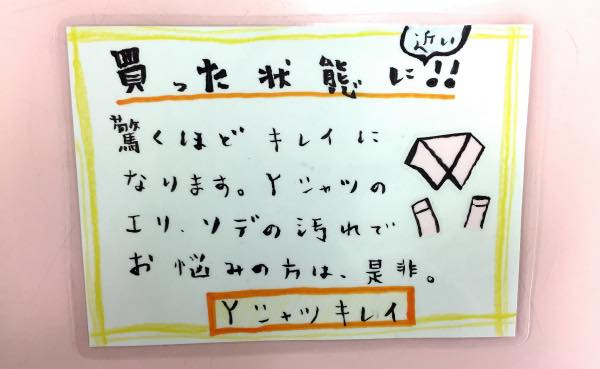 近い
買った状態に!!
驚くほどキレイに
なります。Yシャツの
エリ、ソデの汚れで
お悩みの方は、是非。
Yシャツキレイ